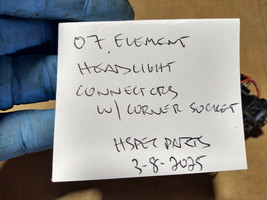 07. ELEMENT
HEADLIGHT
CONNECTORS
W/ CORNER SOCKET
HSPEC PARTS
3-8-2025